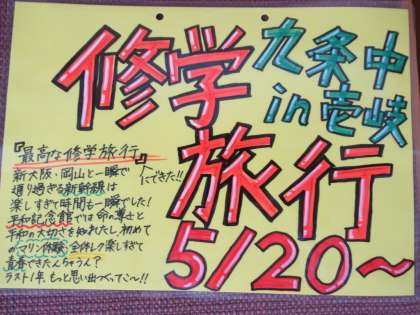 修学
旅行
5/20〜
九条中
in壱岐
『最高な修学旅行』
にできた!!
新大阪・岡山と一瞬で
通り過ぎる新幹線は
楽しすぎて時間も一瞬でした!
平和記念館では命の尊さと
平和の大切さを知れたし、初めて
のマリン体験、全体レク楽しすぎて
青春できたんちゃうん?
ラスト1年、もっと思い出つくってこ〜!!